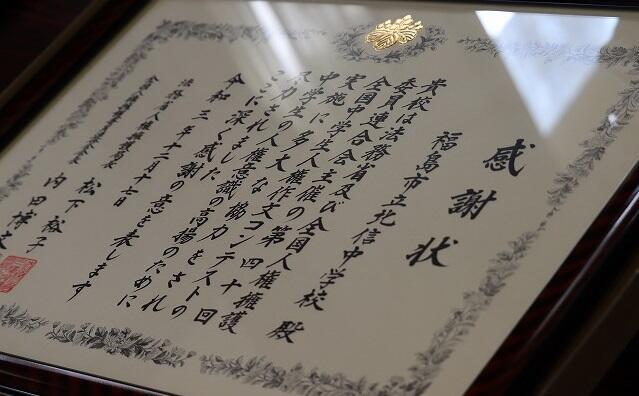 感謝状
福島市立北信中学校 殿
貴校は法務省及び全国人権擁護
委員連合会主催の第四十回
全国中学生人権作文コンテストの
実施に多大な協力をされ
中学生の人権意識の高揚のために
尽力されました
ここに深く感謝の意を表します
令和三年十二月十七日
法務省人権擁護局長 松下裕子
内田博文